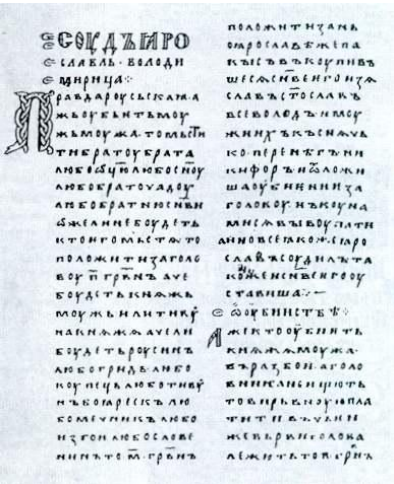 СОУДЪ ꙖРО
СЛАВЛЬ· ВОЛОДИ
МИРИЦА⁘
Правда роусьскаꙗ· а
жь оубьѥть моу
жь моужа· то мьсти
ти братоу брата
любо ѡц҃ю любо сн҃оу
любо братоучадоу
любо братню сн҃ви
ѡже ли не боудеть
кто ѥго мьстѧ то
положити за голо
воу· п҃· грн҃ъ· аче
боудеть кнѧжь
моужь или тиву
на кнѧжѧ аче ли
боудеть роусинъ
любо гридь· любо
коупець любо тиву
нъ боꙗрескъ лю
бо мечникъ любо
изгои любо слове
нинъ то м҃· грн҃ъ
положити за нь
по ꙗрославѣ же па
кы съвъкоупивъ
шесѧ сн҃ве ѥго изѧ
славъ ст҃ославъ
всеволодъ и моу
жи ихъ къснѧчь
ко· перенѣгъ ни
кифоръ и ѿложи
ша оубиѥниѥ за
головоу· нъ коуна
ми сѧ выкоупати
а ино всѥ ꙗкоже ꙗро
славъ соудилъ та
коже и сн҃ве ѥго оу
ставиша⁘
ѡ оубииствѣ⁘
Аже кто оубиѥть
кнѧжѧ моужа·
въ разбои· а голо
вника не ищють
то вирьвноую пла
тити въ чьѥи
же вьрви голова
лежить то п҃· грн҃ъ